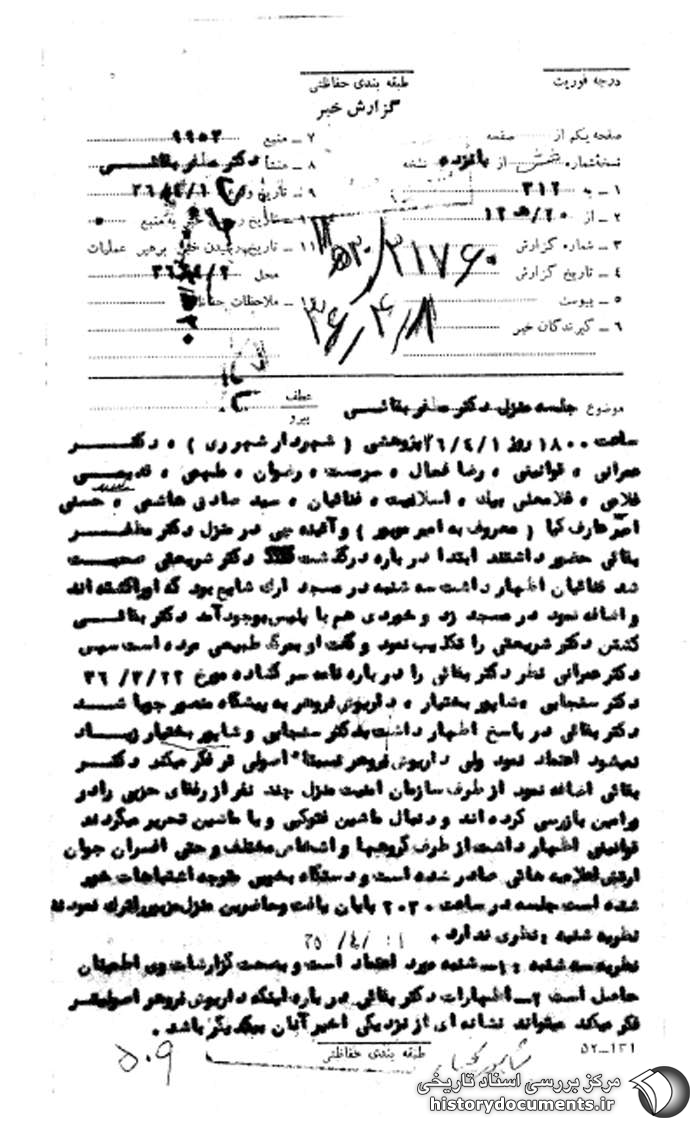 درجه فوریت
طبقه بندی حفاظتی
گزارش خبر
صفحه یکم از صفحه
نسخه شماره شش از پانزده نسخه
۱ ـ به ۳۱۲
۲ ـ از ۲۰/ه۱۲
۳ ـ شماره گزارش
۴ ـ تاریخ گزارش
۵ ـ پیوست
۶ ـ گیرندگان خبر
۷ ـ منبع ۹۹۵۲
۸ ـ منشأ دکتر مظفر بقائی
۹ ـ تاریخ ۳۶/۴/۱
تاریخ خبر به منبع
۱۱ ـ تاریخ رسیدن خبر برهبر عملیات
محل ۳۶/۴/۲
ملاحظات حفاظتی
۳۱۷۶۰
۳۶/۴/۸
موضوع جلسه منزل دکتر مظفر بقائی
عطف
پیرو
ساعت ۱۸۰۰ روز ۳۶/۴/۱ پژوهشی ( شهردار شهرری ) ، دکتر
عمرانی ، قوانینی ، رضا فعال ، سرمست ، رضوان ، طبیبی ، قدیمی
فلاحی ، غلامعلی بیک ، اسلامیت ، فنائیان ، سید صادق هاشمی ، حسنی
امیر عارف کیا ( معروف به امیر موبور ) و آئینه چی در منزل دکتر مظفر
بقائی حضور داشتند ابتدا در باره درگذشت دکتر شریعتی صحبت
شد فنائیان اظهار داشت سه شنبه در مسجد ارک شایع بود که او را کشته اند
و اضافه نمود در مسجد زد و خوردی هم با پلیس بوجود آمد دکتر بقائی
کشتن دکتر شریعتی را تکذیب نمود و گفت او بمرگ طبیعی مرده است سپس
دکتر عمرانی نظر دکتر بقائی را در باره نامه سر گشاده مورخ ۳۶/۳/۲۲
دکتر سنجابی ، شاپور بختیار ، داریوش فروهر به پیشگاه منصور جویا شد
دکتر بقائی در پاسخ اظهار داشت بدکتر سنجابی و شاپور بختیار زیاد
نمیشود اعتماد نمود ولی داریوش فروهر نسبتا" اصولی تر فکر میکند دکتر
بقائی اضافه نمود از طرف سازمان امنیت منزل چند نفر از رفقای حزبی را در
ورامین بازرسی کرده اند و دنبال ماشین فتوکپی و یا ماشین تحریر میگردند
قوانینی اظهار داشت از طرف گروهها و اشخاص مختلف و حتی افسران جوان
ارتش اعلامیه هائی صادر شده است و دستگاه بخوبی متوجه اشتباهات خود
شده است جلسه در ساعت ۲۰۳۰ پایان یافت و حاضرین منزل مزبور را ترک نمودند
نظریه شنبه : نظری ندارد .
نظریه سه شنبه : ۱ـ شنبه مورد اعتماد است و بصحت گزارشات وی اطمینان
حاصل است ۲ـ اظهارات دکتر بقائی در باره اینکه داریوش فروهر اصولیتر
فکر میکند میتواند نشانه ای از نزدیکی اخیر آنان بیکدیگر باشد .
طبقه بندی حفاظتی
۵۲ـ۱۳۱
۵۰۹
مرکز بررسی اسناد تاریخی
historydocuments.ir